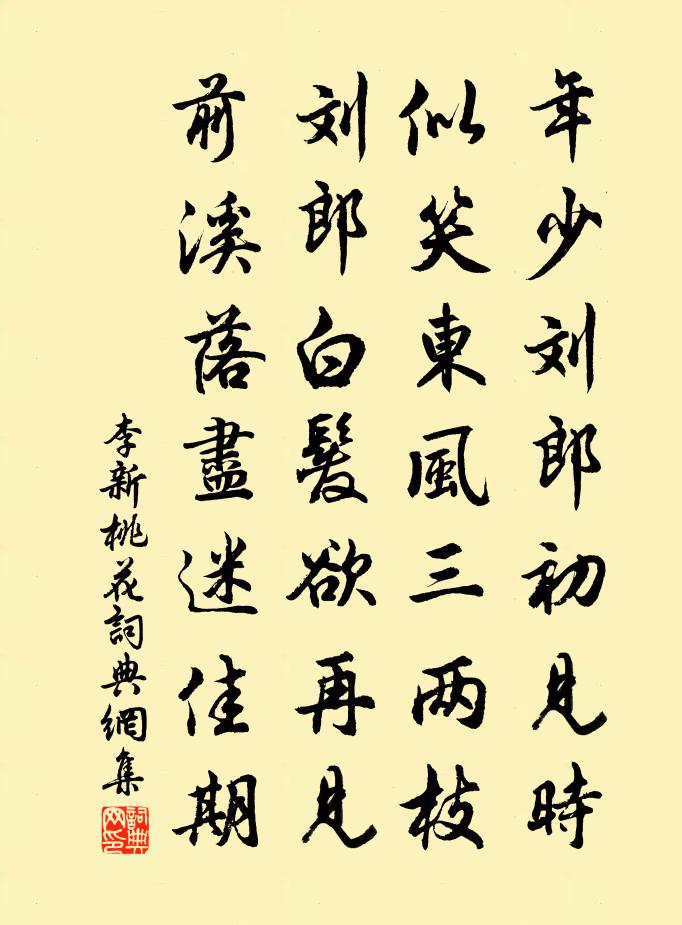 年少刘郎初見時
似笑東風三两枝
刘郎白髮欲再見
前溪落盡迷佳期
李新桃花詞典網集
詞典网印